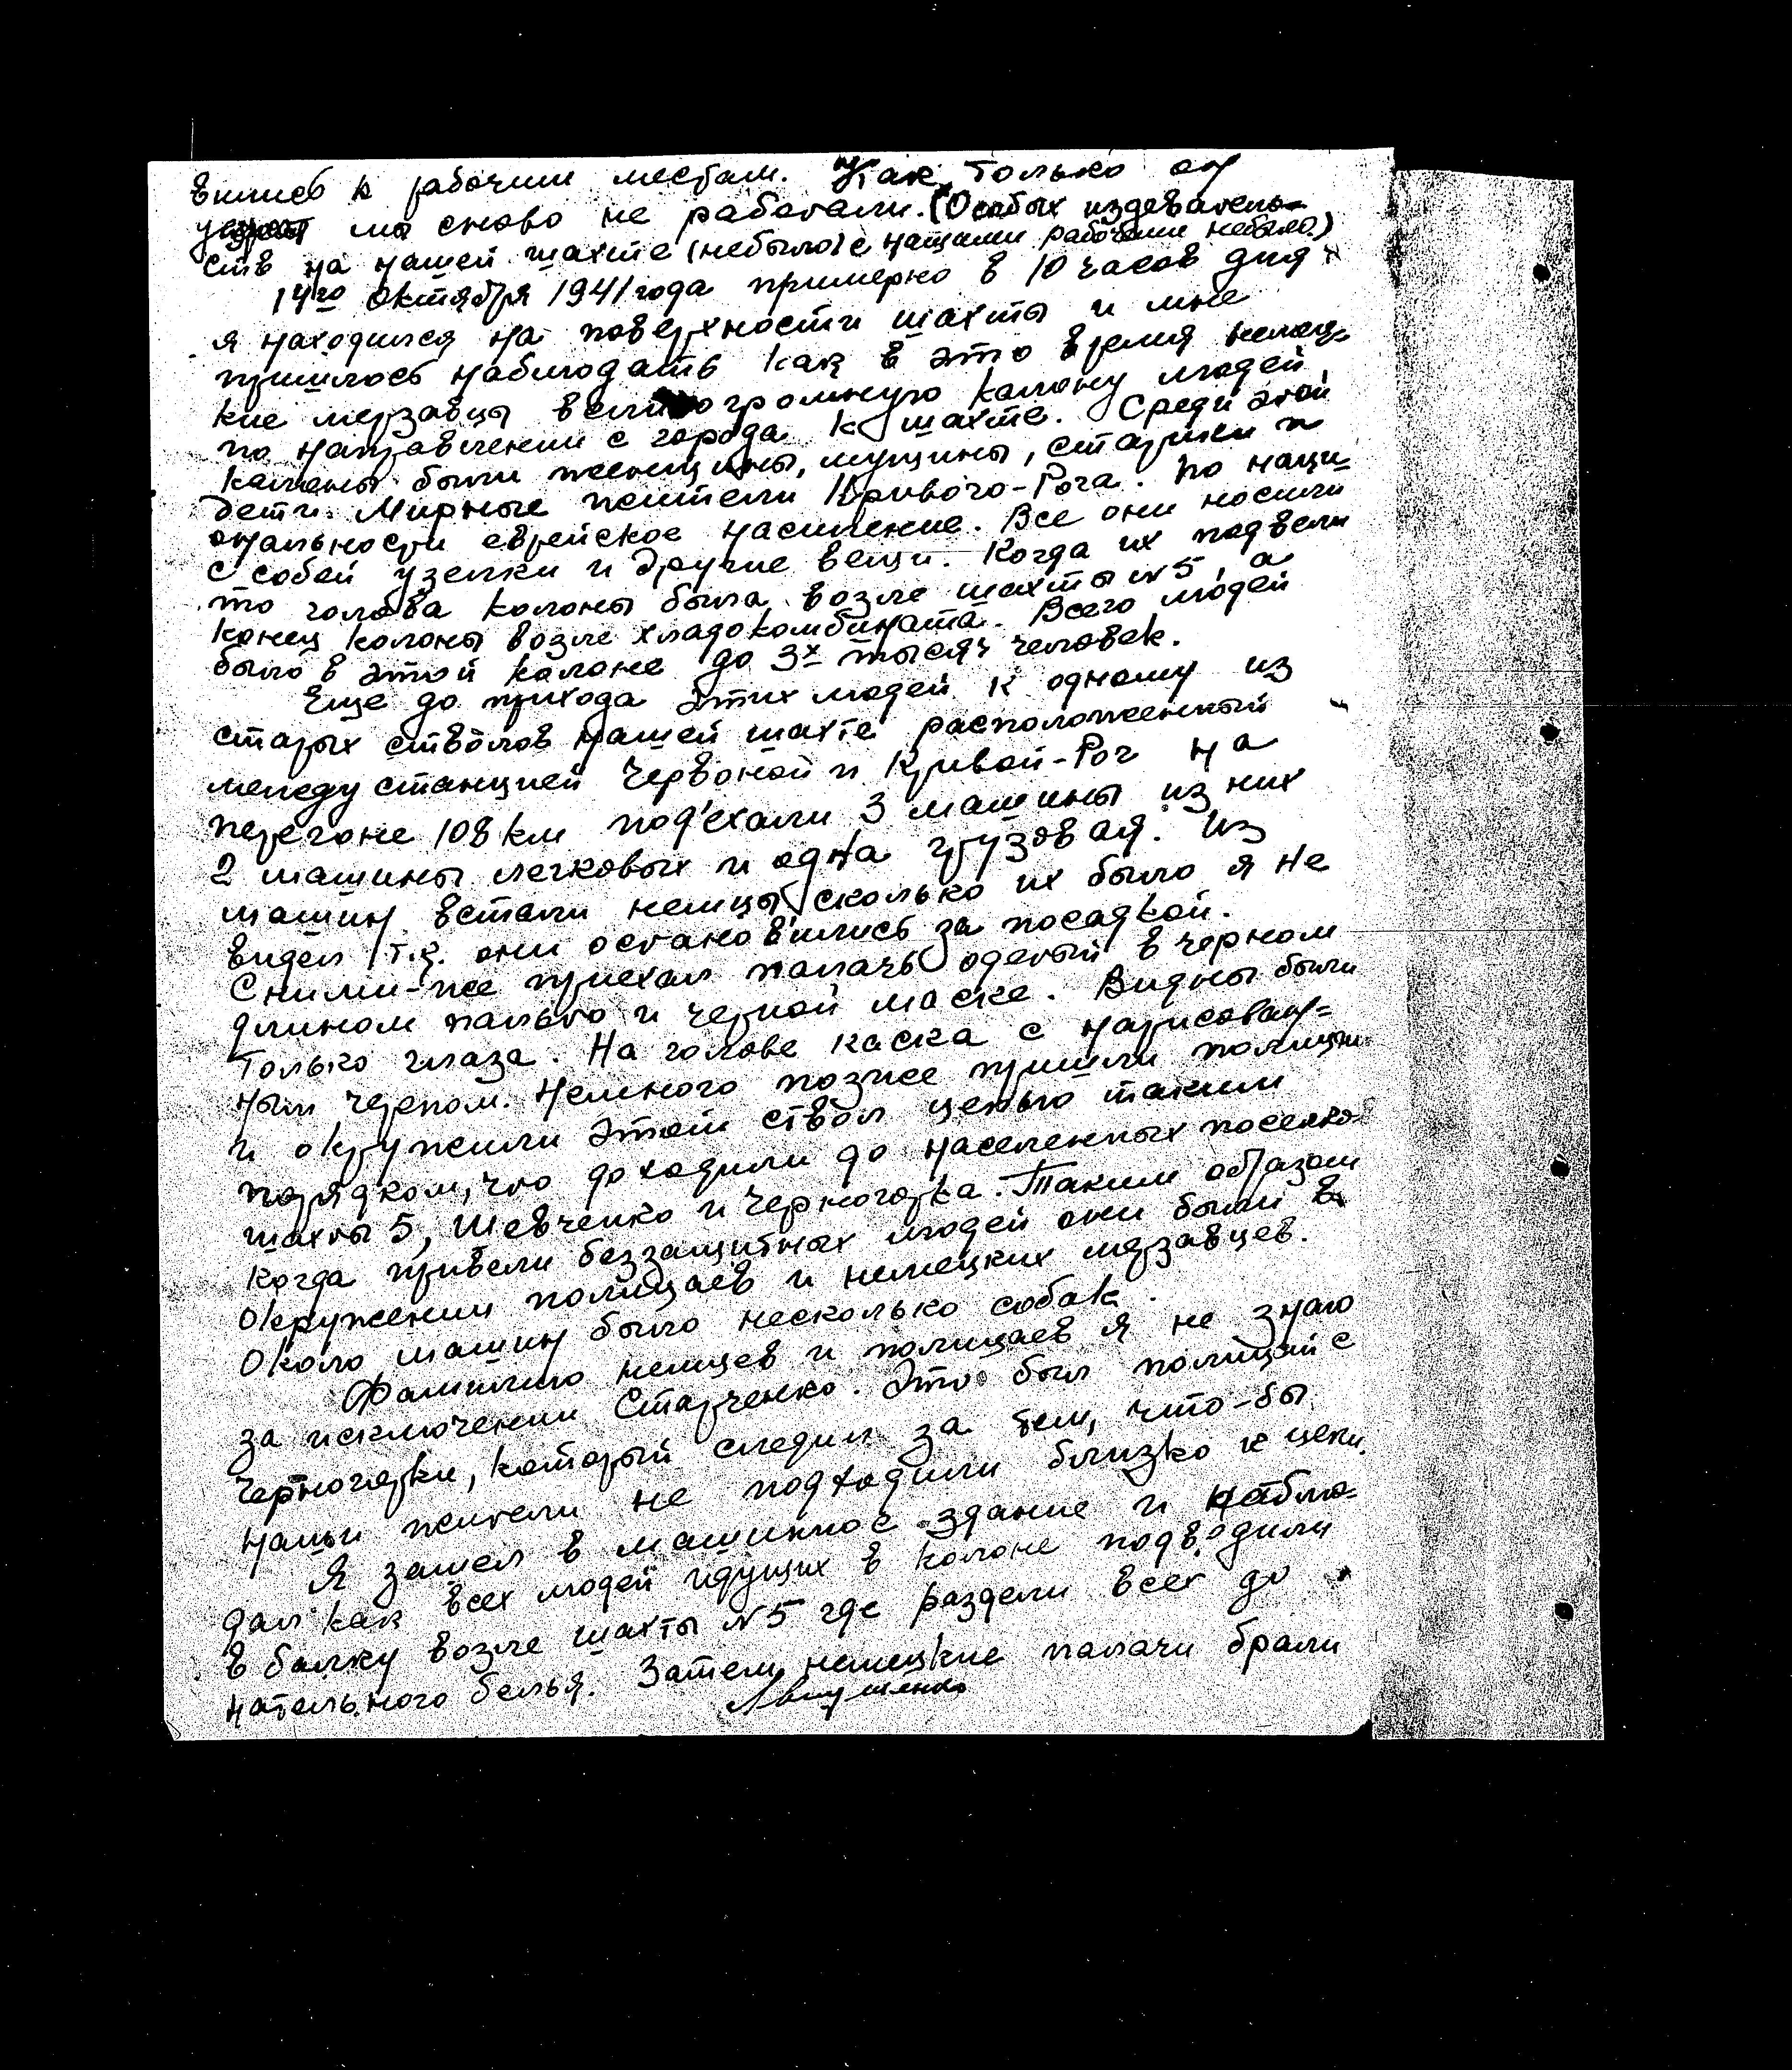 вились к рабочим местам. Как только он
уедет мы снова не работали. (Особых издеватель-
ств на нашей шахте (небыло) с нащими рабочими небыло)
14го октября 1941 года примерно в 10 часов дня
я находился на поверхности шахты и мне
пришлось наблюдать как в это время немец-
кие мерзавцы вели огромную калону людей
по направлении с города к шахте. Среди этой
калоны были женщины, мущины, старики и
дети. Мирные жители Кривого-Рога. По наци-
ональности еврейское насиление. Все они носили
с собой узелки и другие вещи. Когда их подвели
то голова колоны была возле шахты №5, а
конец колоны возле хладокомбината. Всего людей
было в этой калоне до 3х тысяч человек.
Еще до прихода этих людей к одному из
старых стволов нашей шахте расположенный
между станцией Червоной и Кривой-Рог на
перегоне 108 км под'ехали 3 машины из них
2 машины легковых и одна грузовая. Из
машин встали немцы сколько их было я не
видел т.к. они остановились за посадкой.
Сними-же приехал палачь одетый в черном
длином пальто и черной маске. Видны были
только глаза. На голове каска с нарисован=
ным черепом. Немного позже пришли полицаи
и окружили этот ствол цепью таким
порядком, что доходили до населенных поселков
шахты 5, Шевченко и Черногорка. Таким образом
когда привели беззащитных людей они были в
окружении полицаев и немецких мерзавцев.
Около машин было несколько собак.
Фамилию немцев и полицаев я не знаю
за исключении Старченко. Это был полицай с
Черногорки, который следил за тем, что-бы
наши жители не подходили близко к цепи.
Я зашел в машинное здание и наблю=
дал как всех людей идущих в колоне подводили
в балку возле шахты №5 где раздели всех до
нательного белья. Затем немецкие палачи брали